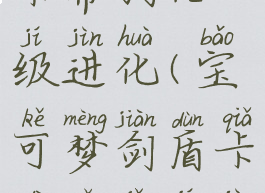 jí jìn huà bǎo
级进化(宝
kě mèng jiàn dùn qiǎ
可梦剑盾卡